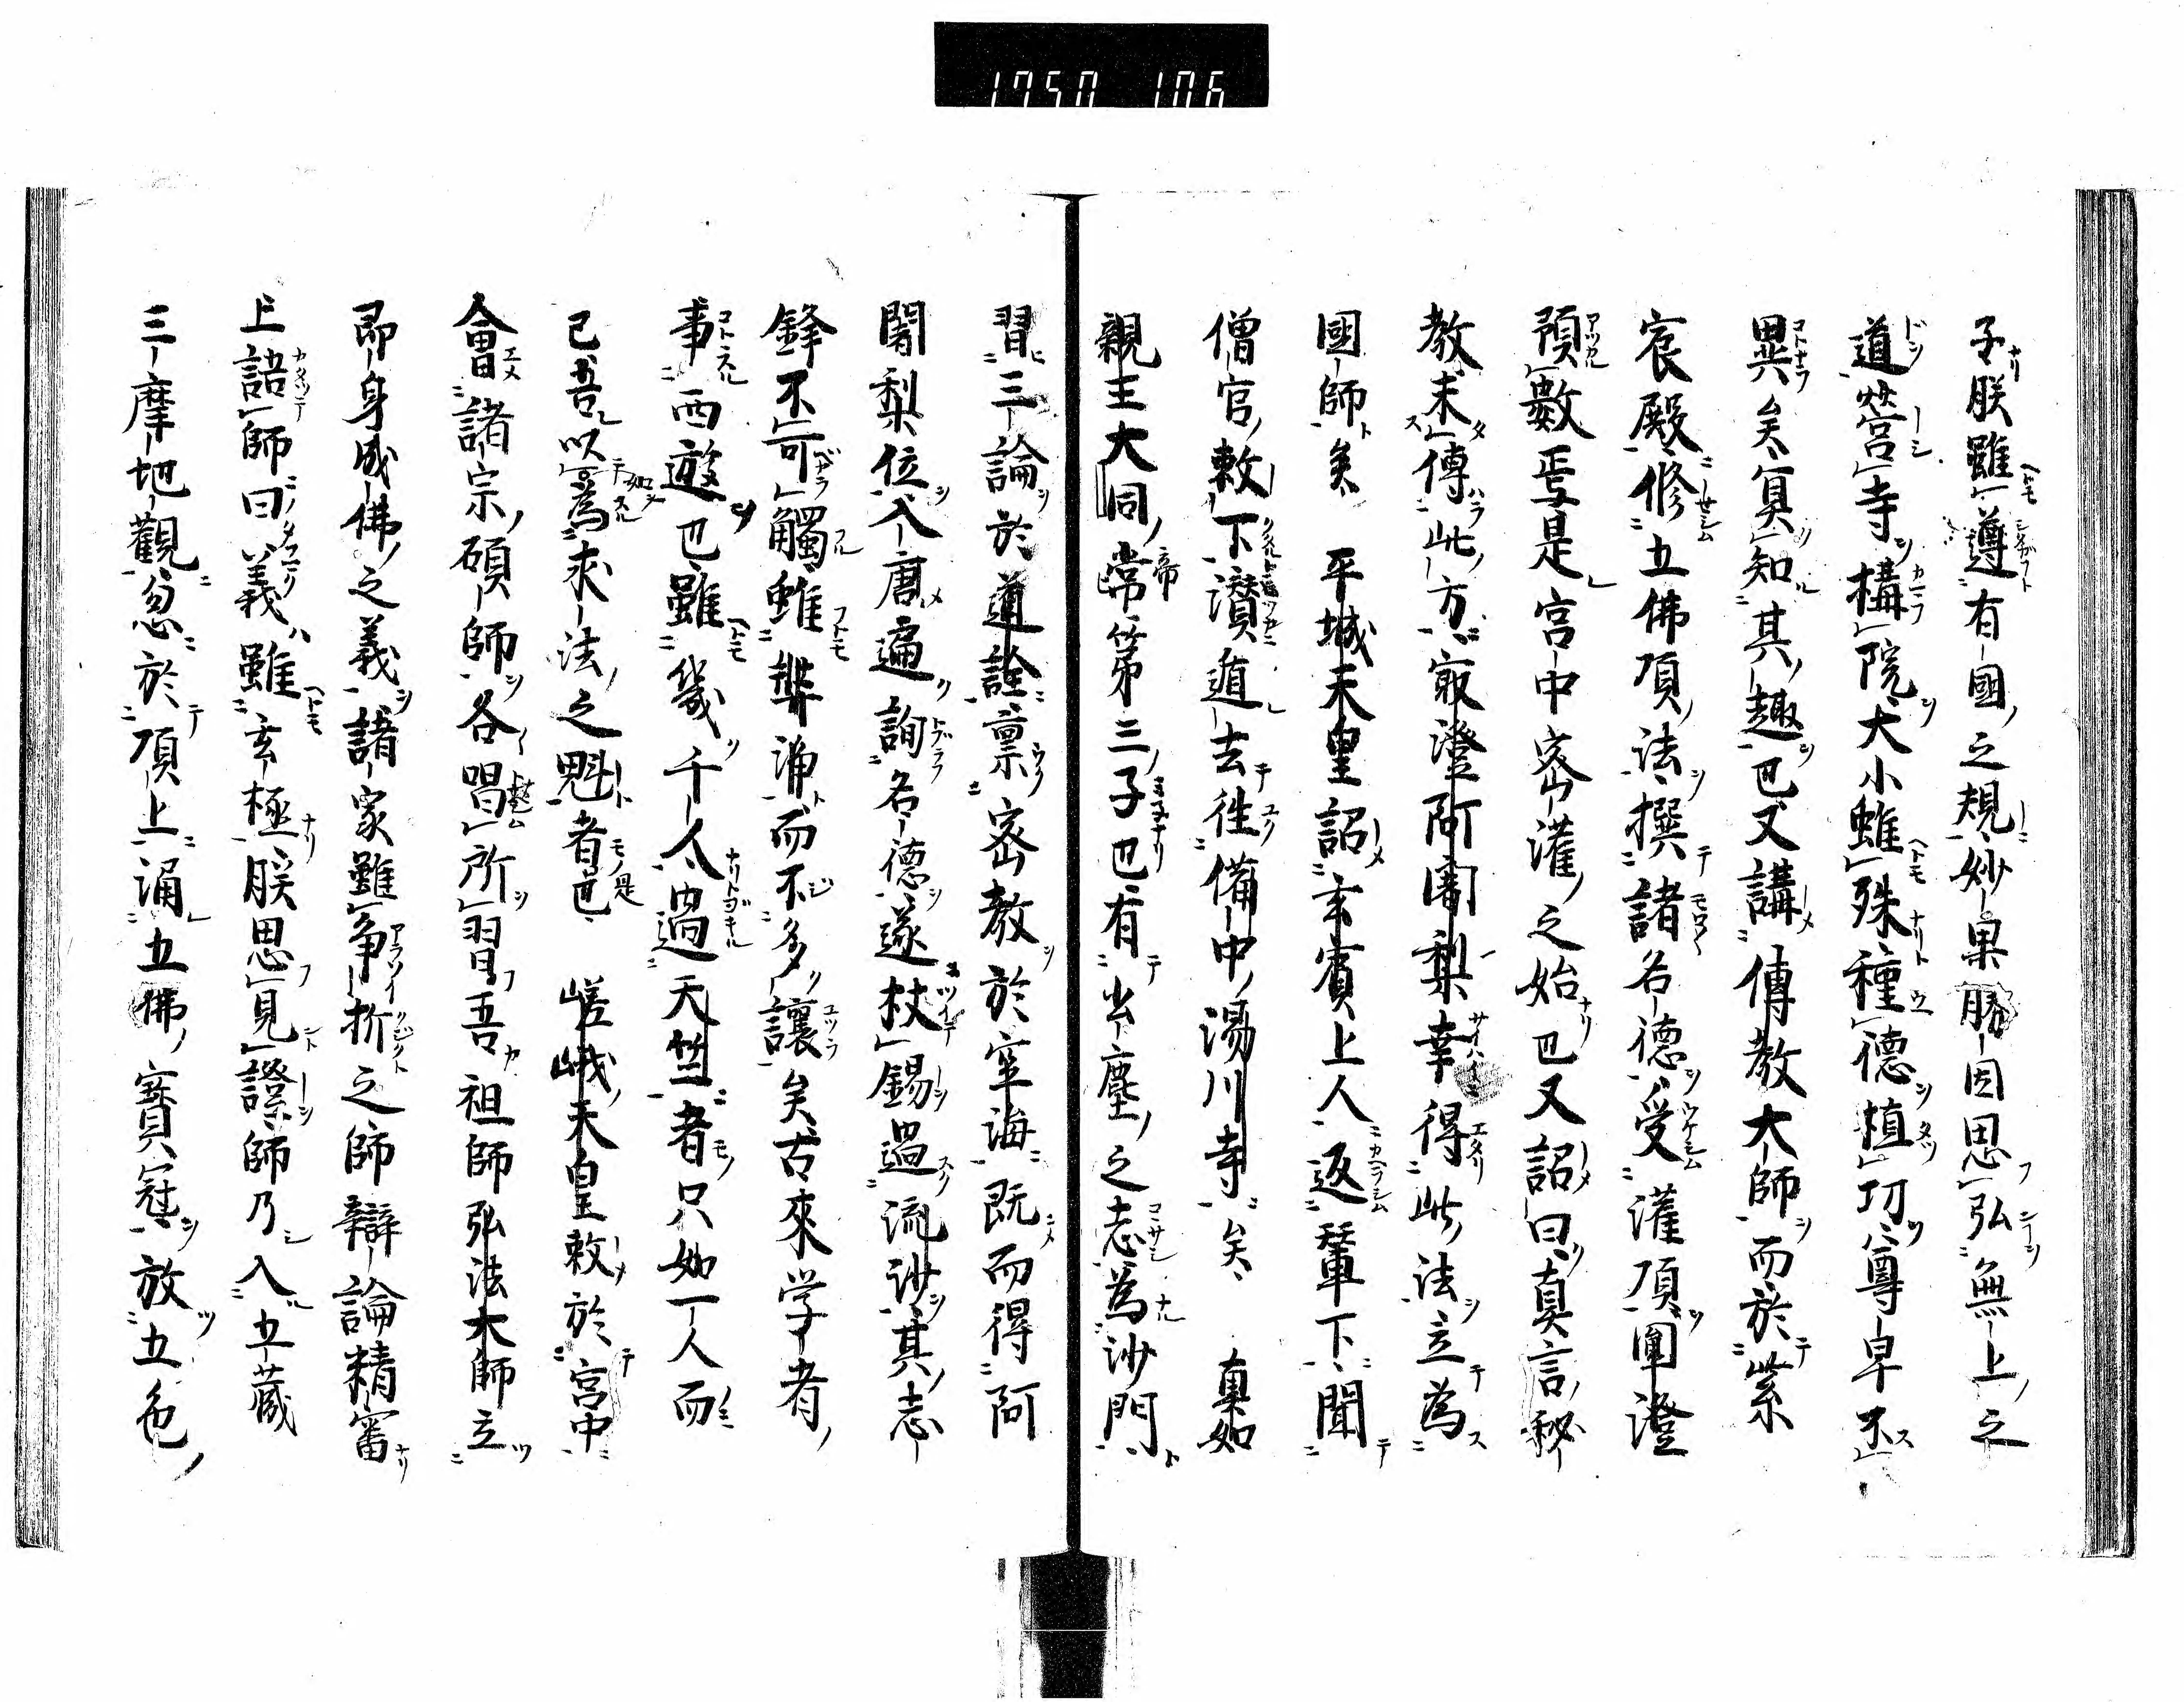 1750 106
子朕雖遵有國之規妙果勝因思弘無上之
道營寺構院大小雖殊種德植功尊卑不
異矣冥知其趣也又講傳教大師而於紫
宸殿修五佛頂法撰諸名德受灌頂圍澄
預數焉是宮中密灌之始也又詔曰真言秘
教未傳此方最澄阿闍梨幸得此法立為
國師矣 平城天皇詔玄賓上人返輦下聞
僧官敕下潛遁去往備中湯川寺矣 真如
親王大同常第三子也有出塵之志為沙門
習三論於道詮禀密教於空海既而得阿
闍梨位入唐遍詢名德遂杖錫過流沙其志
鋒不可觸雖輩諍而不多讓矣古來学者
事西遊也雖幾千人過天竺者只如一人而
已吾以為求法之魁者也 嵯峨天皇敕於宮中
會諸宗碩師各唱所習吾祖師弘法大師立
即身成佛之義諸家雖爭折之師辯論精審
上語師曰義雖玄極朕思見證師乃入五藏
三摩地觀忽於頂上涌五佛寶冠放五色